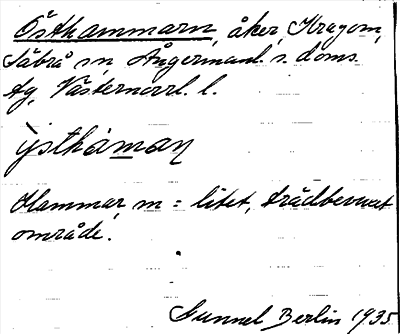 Östhammarn, åker, Kragom,
Säbrå sn, Ångermanl. s. doms.
fg, Västernorrl. l.
ỳsthámaɳ
Hammar, m = litet, trädbevuxet
område.
Gunnel Berlin 1935.